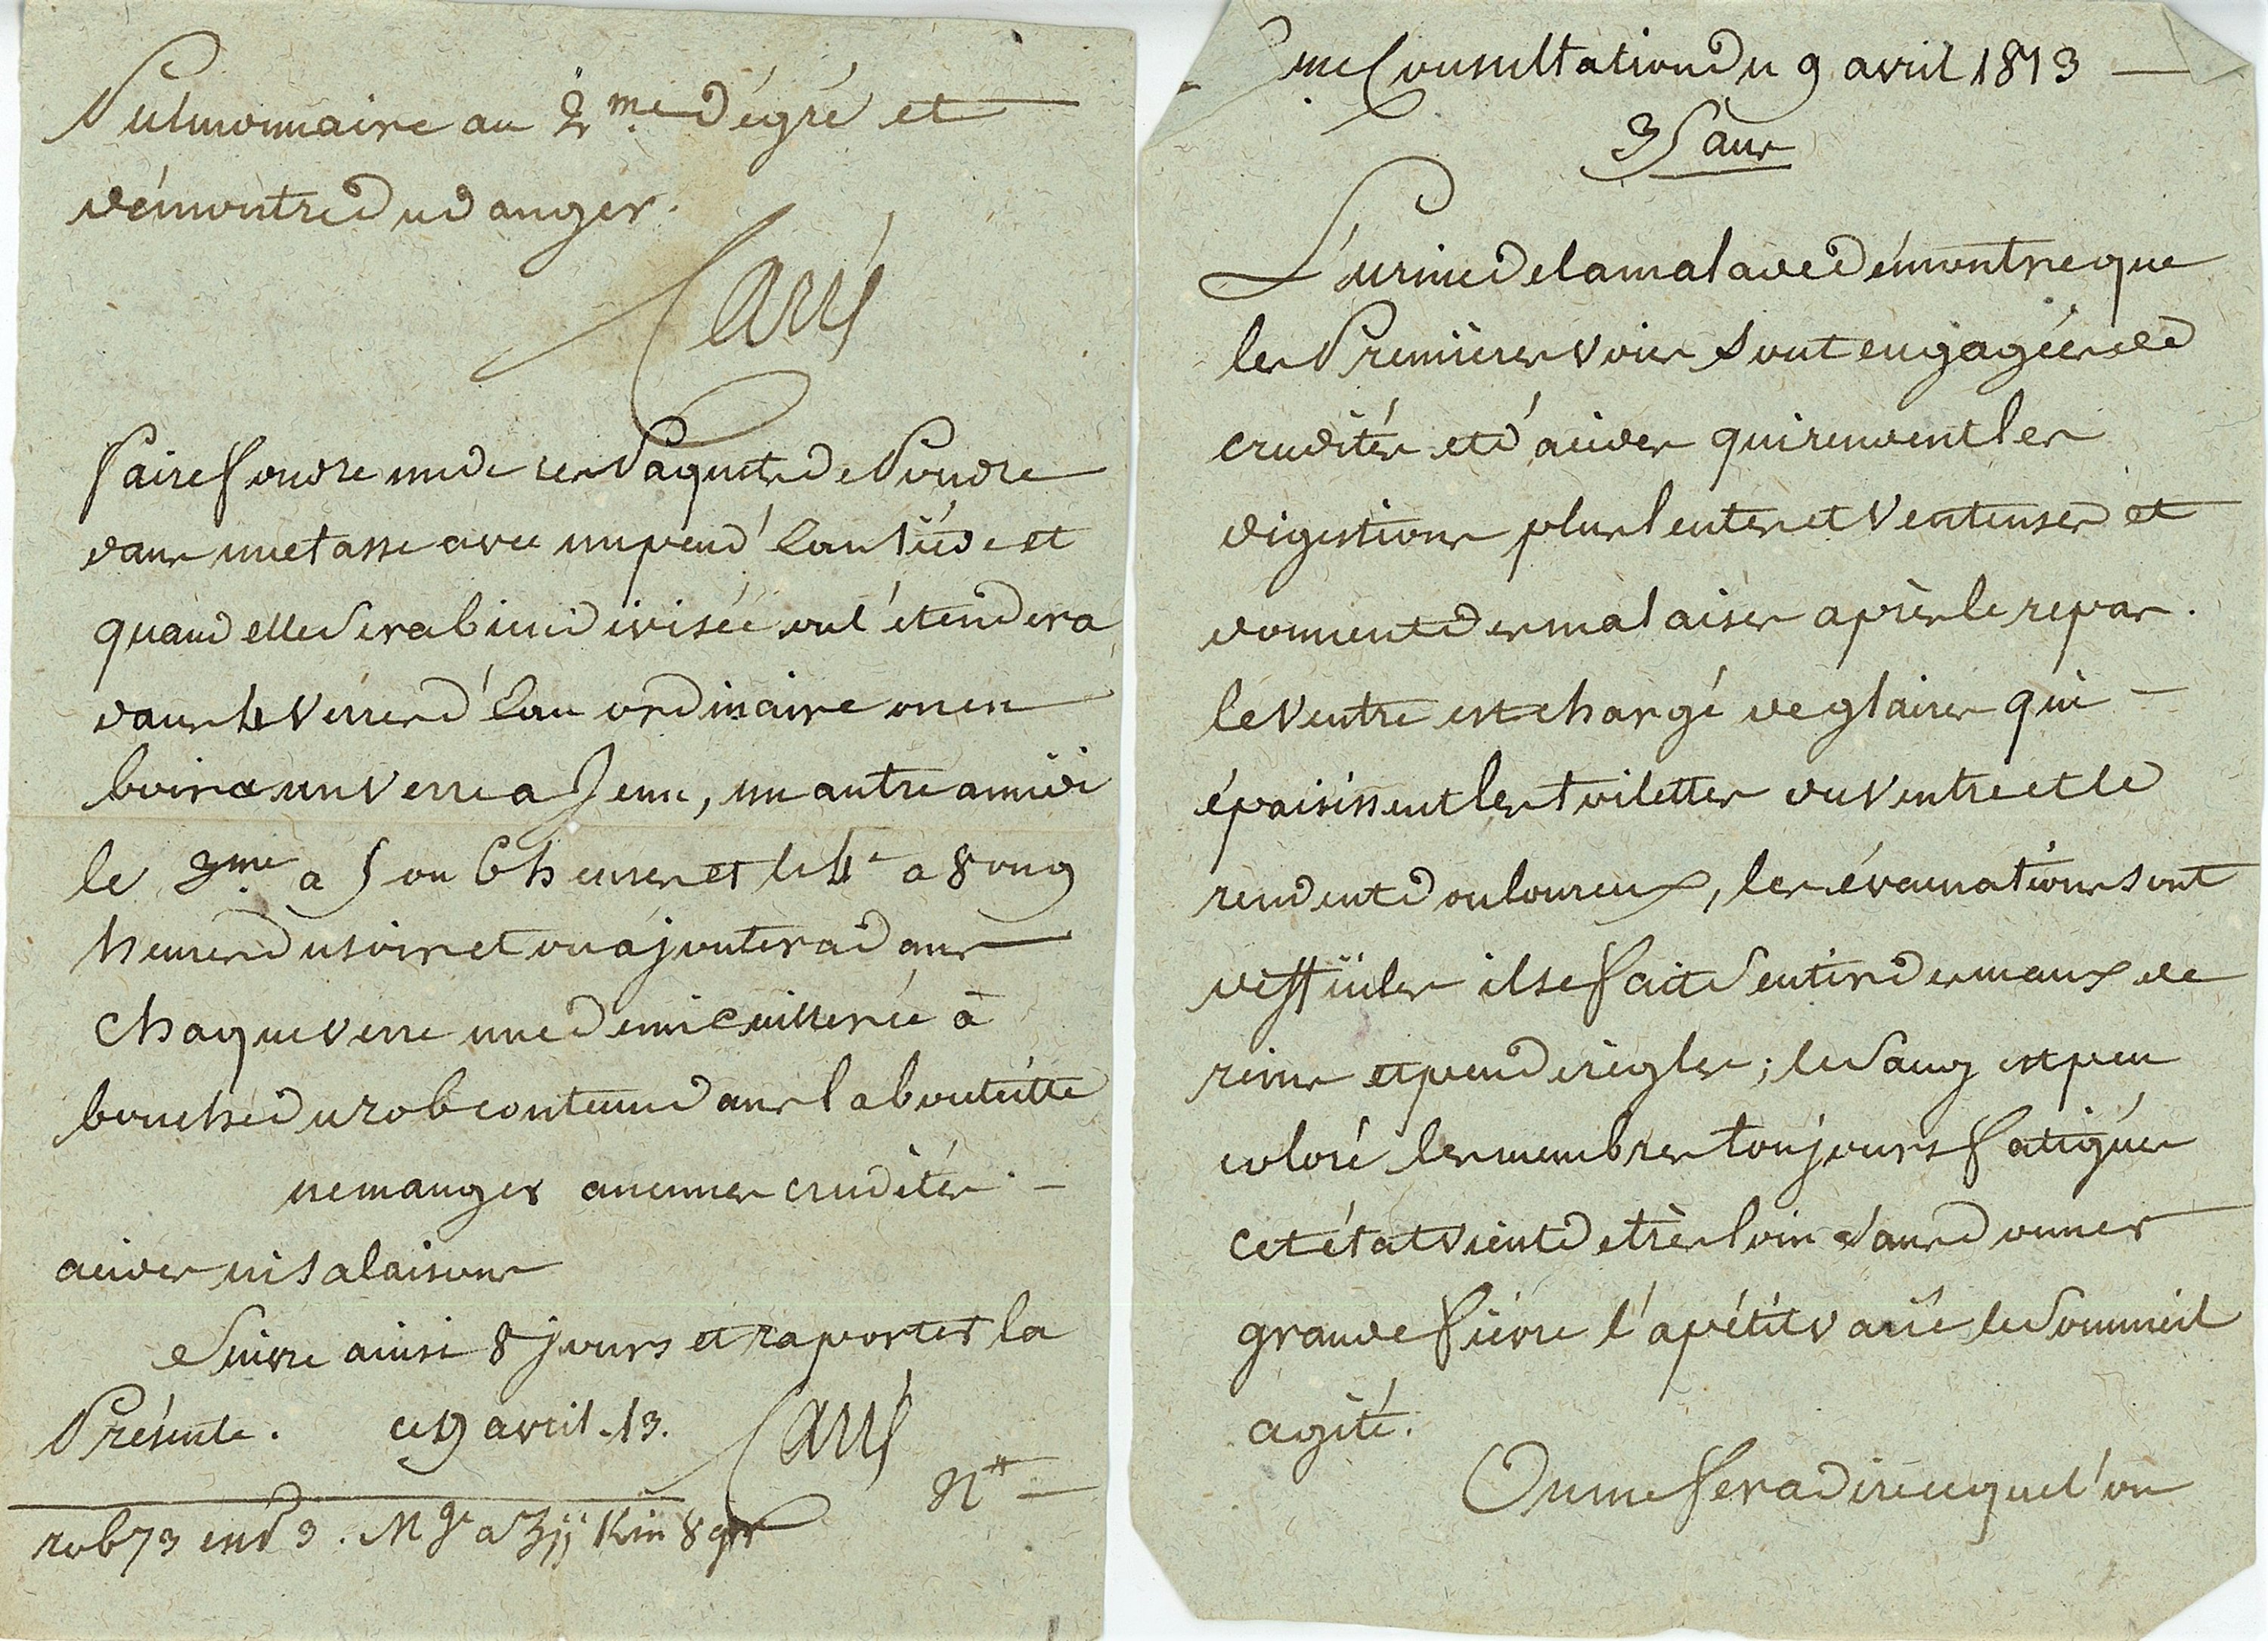 Pulmonnaire au 2me dégré et
démontre du danger.
Carré
faire fondre un de ces Paquets de Poudre
dans une tasse avec un peu d'Eau tiéde et
quand elle Sera bien divisée on l'étendera
dans 4 Verres d'Eau ordinaire on en
boira un verre a Jeun, un autre a midi
le 3me a 5 ou 6 heures et le 4e a 8 ou 9
heures du soir et on ajoutera dans
chaque verre une demi cuillerée à
bouche du rob contenu dans la bouteille
ne manger aucunes crudités -
acides ni salaisons
Suivre ainsi 8 jours et raporter la
Présente. ce 9 avril .13. Carré
rob 73 en 3 . M gr a ʒjj Kin 8 gr
me Consultation du 9 avril 1813 —
35 ans
L'urine de la malade démontre que
les Premiéres voies Sont engagées de
crudités et d'acides qui rendent les
digestions plus lentes et Venteuses et
donnent des malaises après le repas.
le Ventre est chargé de glaires qui -
épaisissent les toilettes du Ventre et le
rendent douloureux, les évacuations sont
difficiles il se fait Sentir des maux de
reins et peu de régles ; le Sang est peu
coloré les membres toujours fatigués
cet état vient de très loin Sans donner
grande fiévre l'apétit varié le Sommeil
agité.
On me fera dire ce que l'on